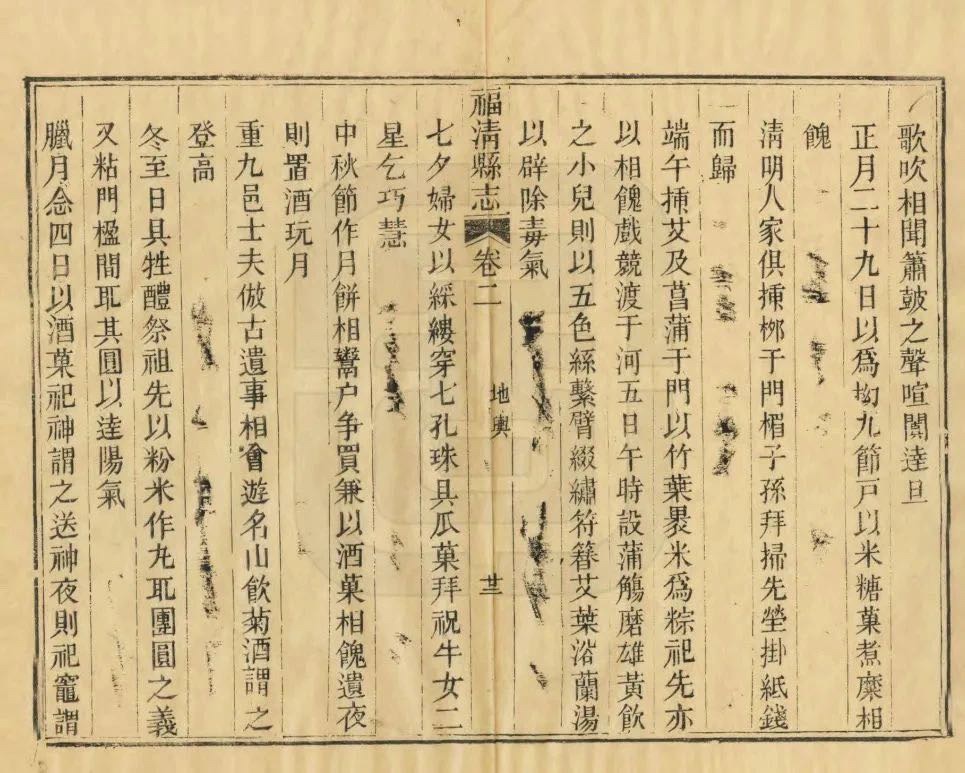 歌吹相聞簫鼓之聲喧闐達旦
正月二十九日以爲拗九節戸以米糖菓煮糜相
餽
淸明人家俱揷桞于門楣子孫拜掃先塋掛紙錢
而歸
端午揷艾及菖蒲于門以竹葉褁米爲粽祀先亦
以相餽戲競渡于河五日午時設蒲觴磨雄黃飮
之小兒則以五色絲繫臂綴繡符簪艾葉浴蘭湯
以辟除毒氣
福淸縣志
卷二
地輿
廿三
七夕婦女以綵縷穿七孔珠具瓜菓拜祝牛女二
星乞巧慧
中秋節作月餅相鬻户争買兼以酒菓相餽遺夜
則置酒玩月
重九邑士夫倣古遺事相會遊名山飮菊酒謂之
登高
冬至日具牲醴祭祖先以粉米作丸取團圓之義
又粘門楹間取其圓以達陽氣
臘月念四日以酒菓祀神謂之送神夜則祀竈謂